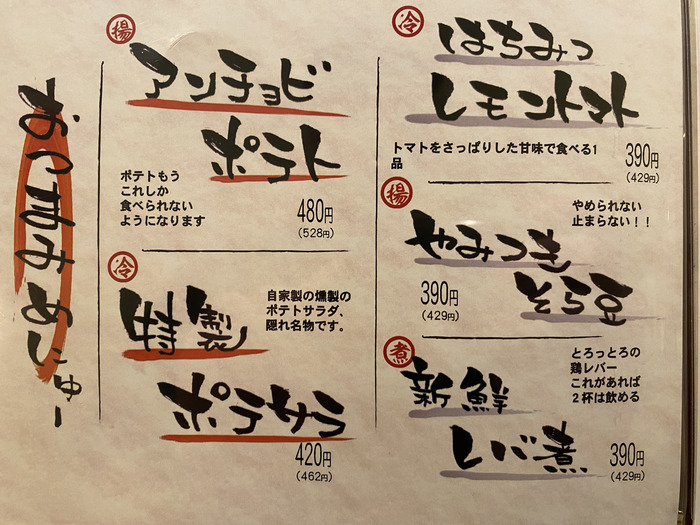 おつまみめにゅー
揚
アンチョビ
ポテト
ポテトもう
これしか
食べられない
ようになります
480円
(528円)
冷
特製
自家製の燻製の
ポテトサラダ、
隠れ名物です。
ポテサラ
420円
(462円)
冷
はちみつ
レモントマト
トマトをさっぱりした甘味で食べる1
品
390円
(429円)
揚
やめられない
止まらない！！
やみつき
そら豆
390円
(429円)
煮
新鮮
レバ煮
とろっとろの
鶏レバー
これがあれば
２杯は飲める
390円
(429円)